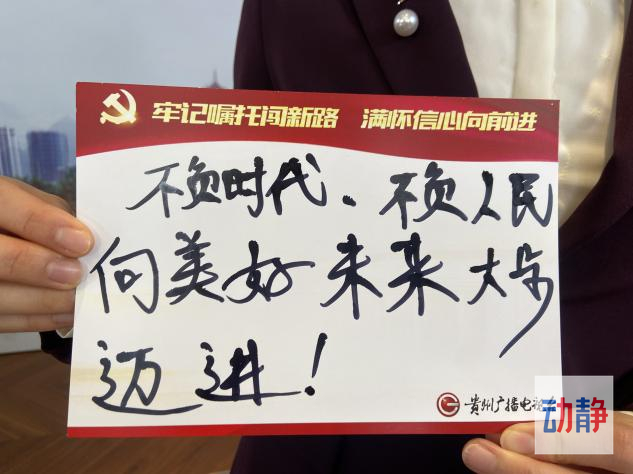 牢记嘱托闯新路 满怀信心向前进
不负时代、不负人民
向美好未来大步
迈进！
贵州广播电视
动静